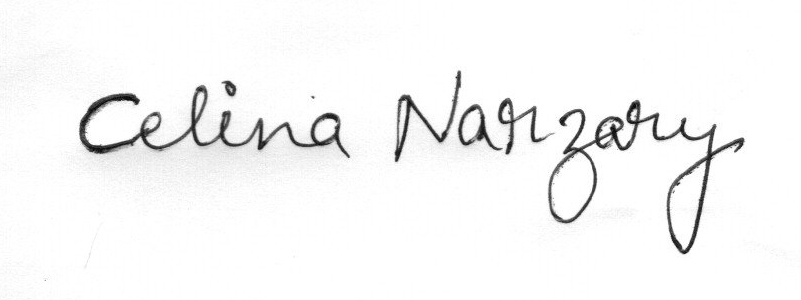 Celina Narzary